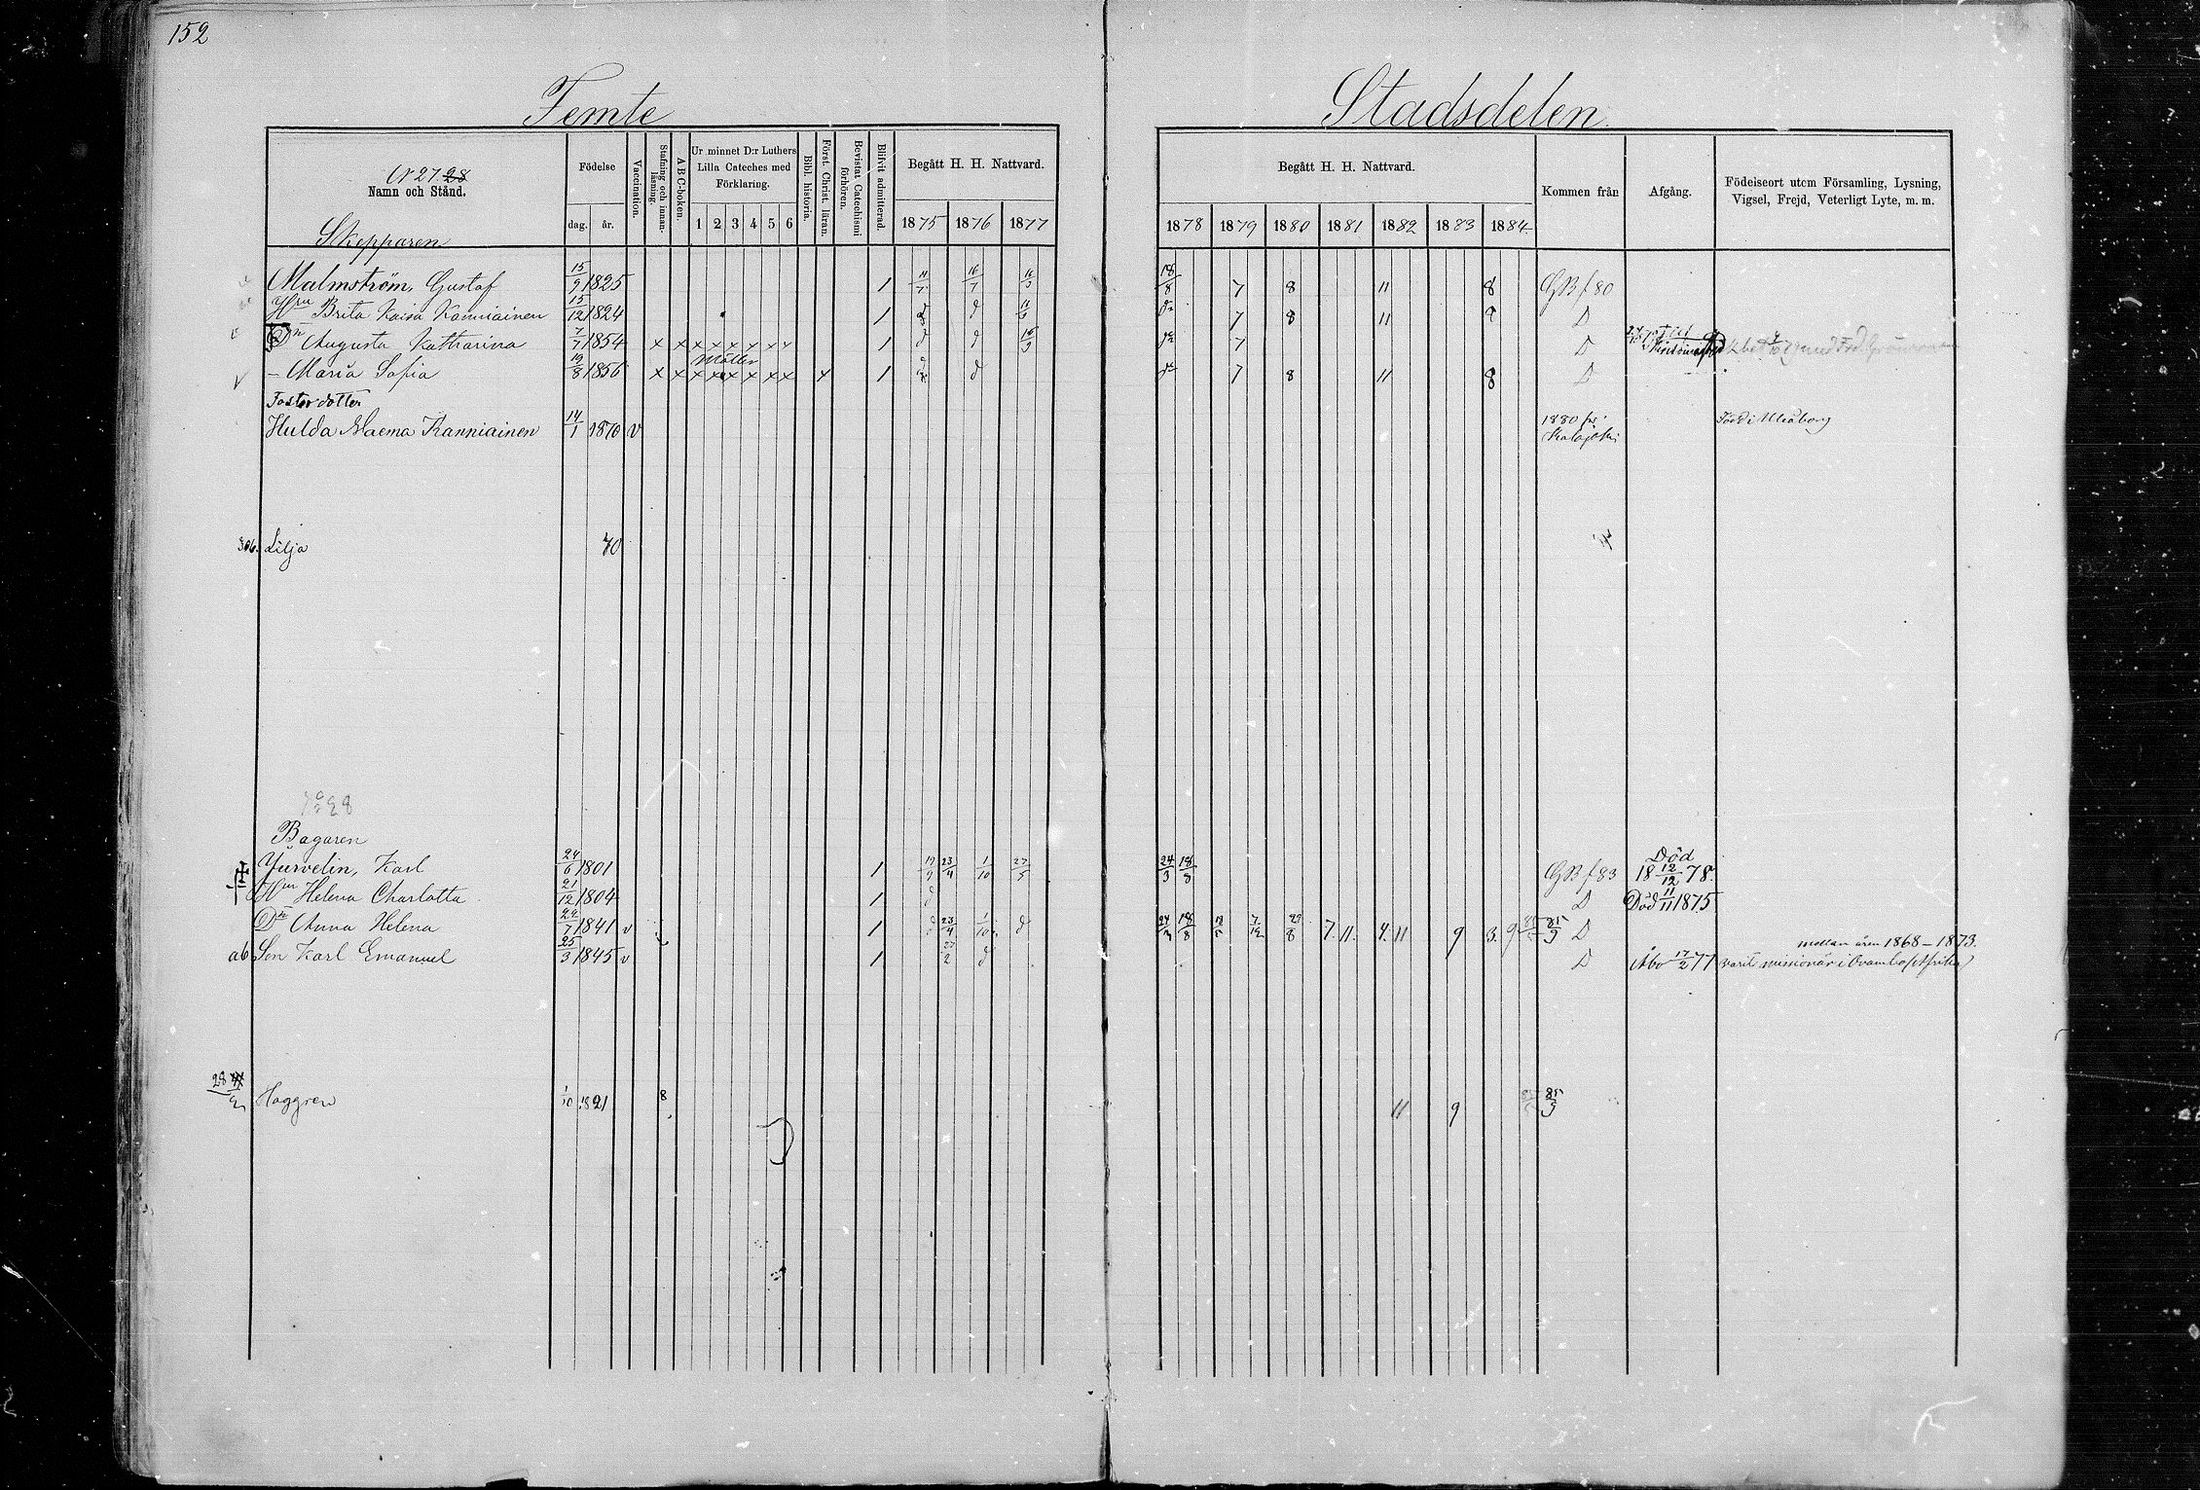 152
Femte Stadsdelen
N 27 28
Namn och Stånd.
Födelse
dag. år.
Vaccination.
Stafning och innanläsning.
A B C-boken.
Ur minnet D:r Luthers Lilla Cateches med Förklaring.
1 2 3 4 5 6
Bibl. historia.
Först. Christ. läran.
Bevistat Catechismi förhören.
Blifvit admitterad.
Begått H. H. Nattvard.
1875 1876 1877
Begått H. H. Nattvard.
1878 1879 1880 1881 1882 1883 1884
Kommen från
Afgång.
Födelseort utom Församling, Lysning, Vigsel, Frejd, Veterligt Lyte, m. m.
Skepparen
Malmström, Gustaf 15/9 1825 1 11/7 16/7 18/8 7 8 11 8 GB f 80
Hru Brita Kaisa Kanniainen 15/12 1824 1 d 7 8 11 8 D
Dr Augusta Katharina 7/7 1854 x x x x x x x x 1 d d 7 D
Möller
- Maria Sofia 19/8 1856 x x x x x x x x x 1 d 7 8 11 8 D
Fosterdotter
Hulda Maema Kanniainen 14/1 1870 v 1880 fr. Kalajoki Född i Uleåborg
306. Lilja 70
Bagaren
Yurvelin, Karl 24/6 1801 1 23/4 1/10 27/5 24/3 18/8 GB f 83 Död 18 12/12 78.
Hru Helena Charlotta 21/12 1804 1 d D Död 11/11 1875
Dr Anna Helena 22/7 1841 v 1 d 23/4 1/10 d 24/3 18/8 7/12 29/8 7. 11. 4. 11 9 3. 9 85/9 D
mellan åren 1868-1873.
ab Son Karl Emanuel 25/3 1845 v 1 27/2 d D Åbo 17/2 77 varit missionär i Ovambo (Afrika)
28
Haggren 1/10 1821 8 11 9 85/9